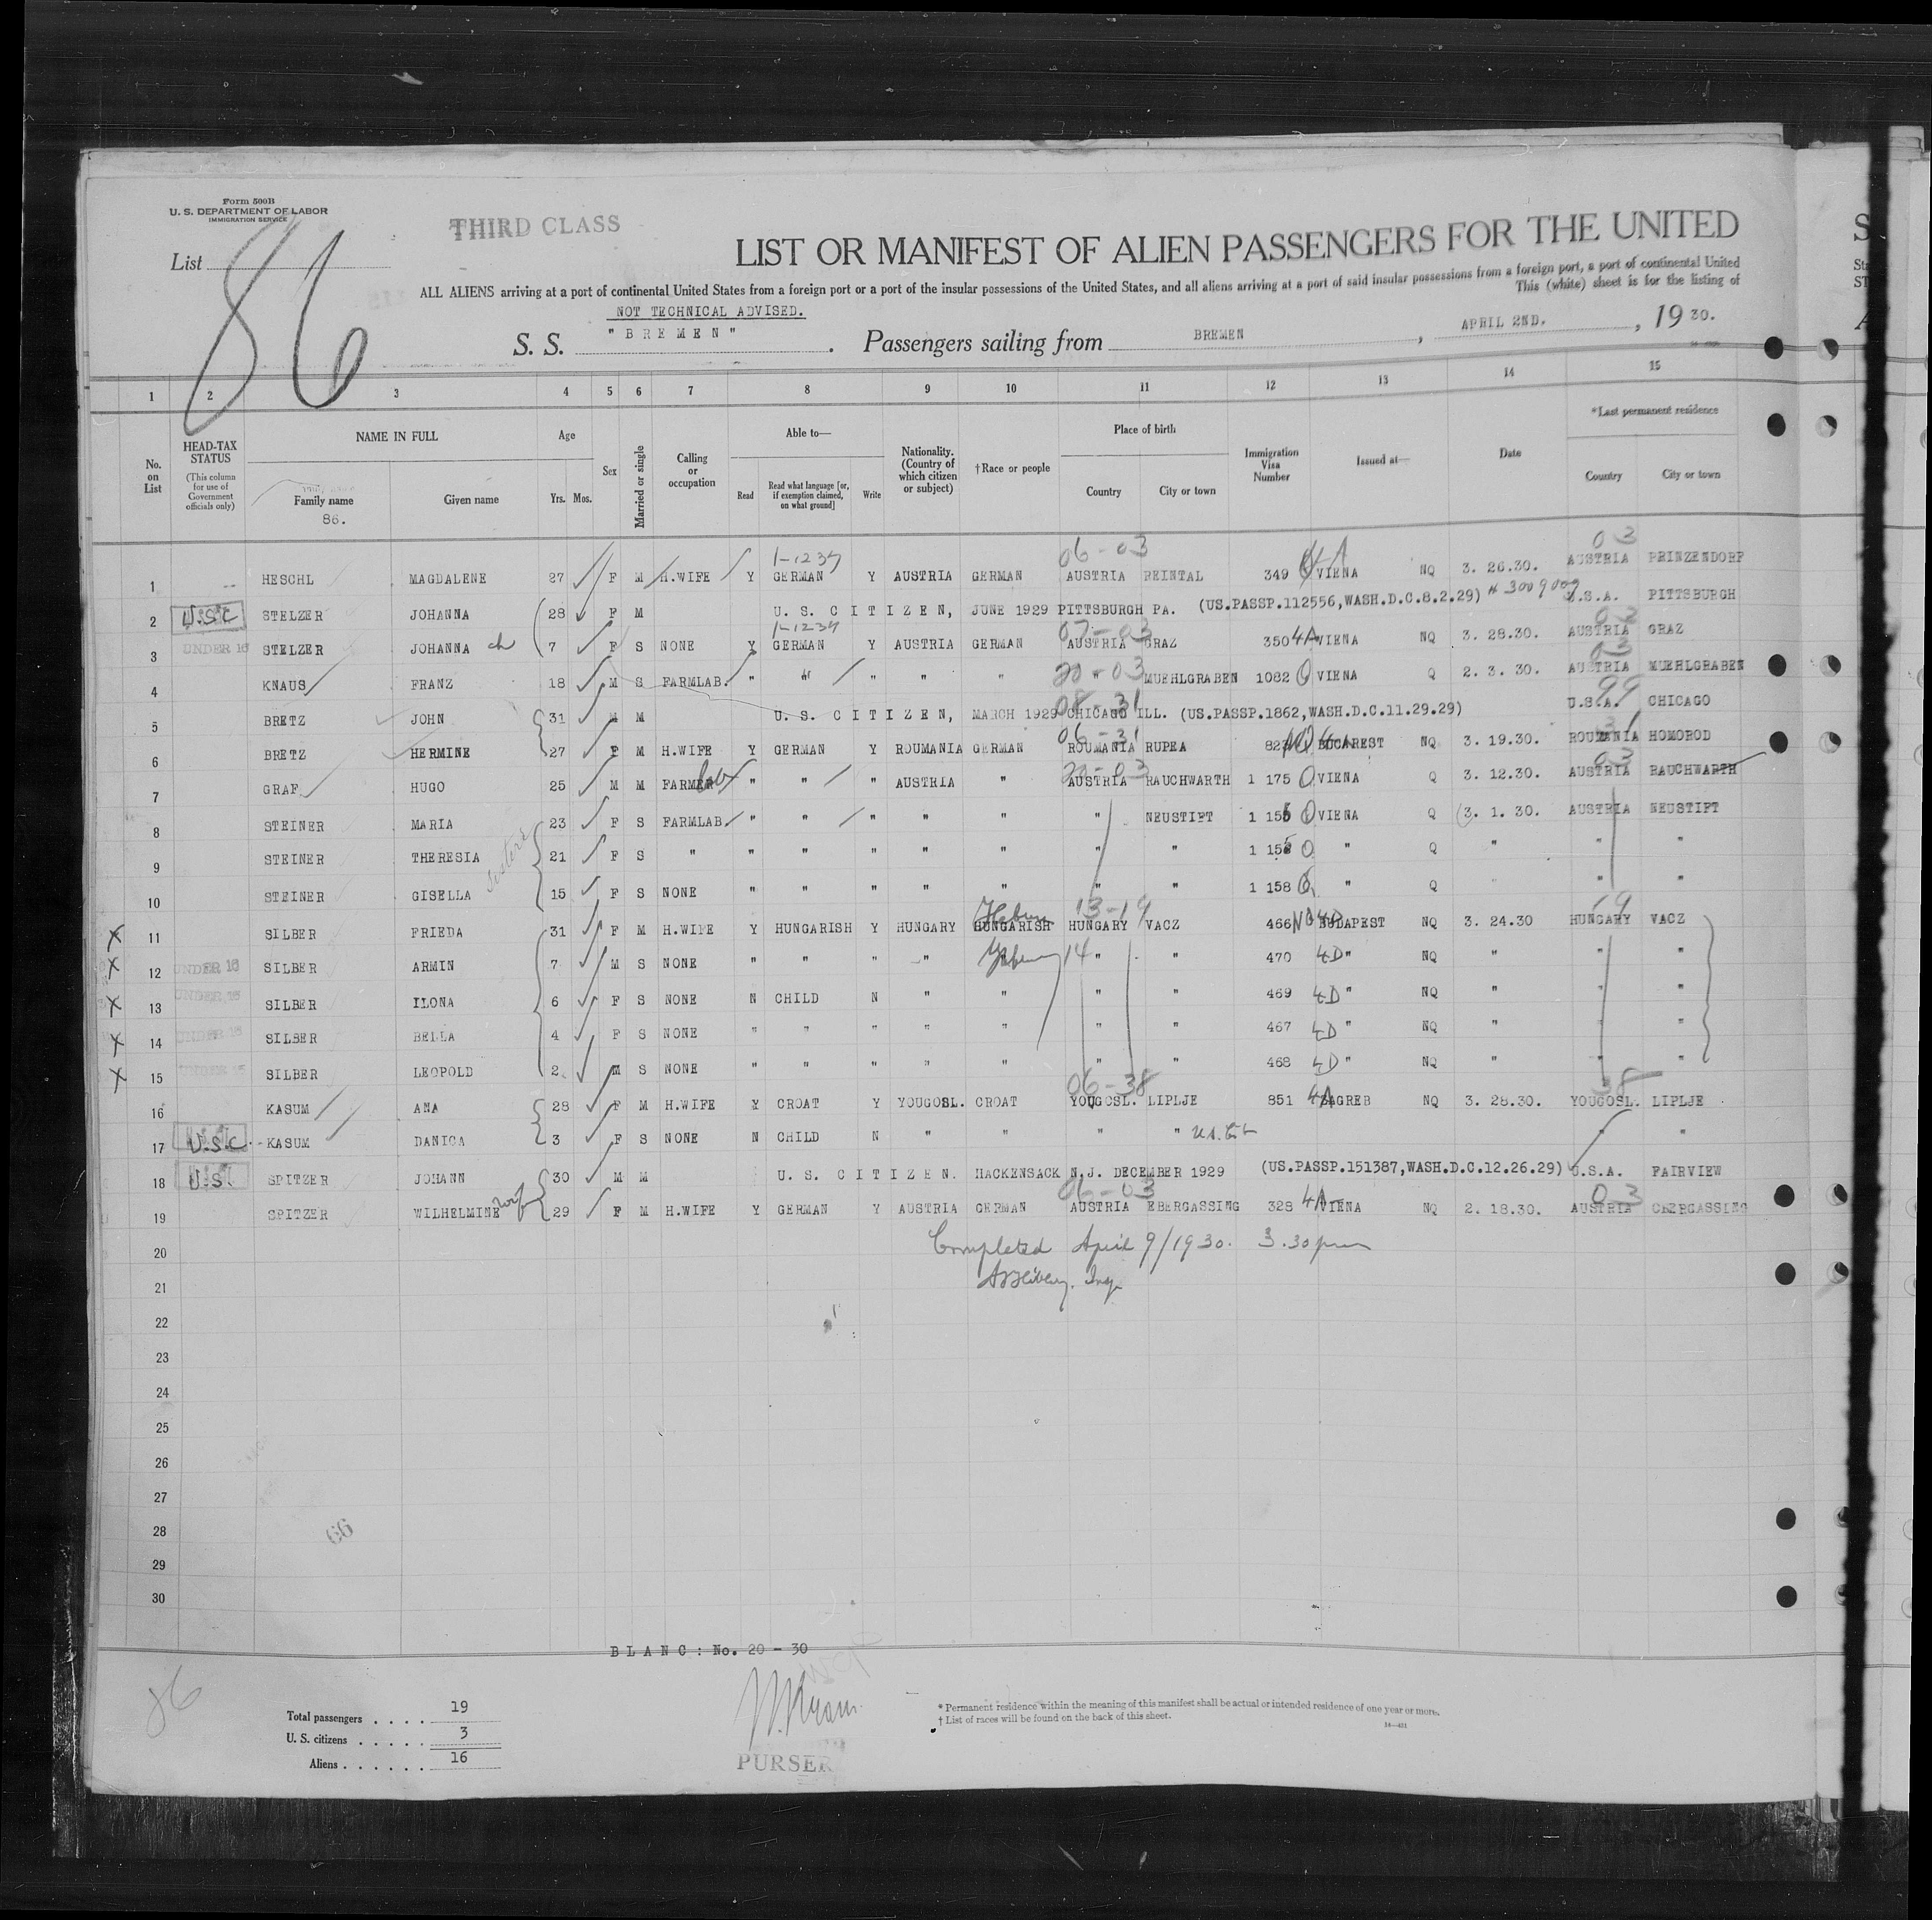 Form 500B
U. S. DEPARTMENT OF LABOR
IMMIGRATION SERVICE
THIRD CLASS
List 86
LIST OR MANIFEST OF ALIEN PASSENGERS FOR THE UNITED
ALL ALIENS arriving at a port of continental United States from a foreign port or a port of the insular possessions of the United States, and all aliens arriving at a port of said insular possessions from a foreign port, a port of continental United
This (white) sheet is for the listing of
NOT TECHNICAL ADVISED.
S. S. "BREMEN" . Passengers sailing from BREMEN , APRIL 2ND. , 19 30.
1 2 3 4 5 6 7 8 9 10 11 12 13 14 15
No. on List
HEAD-TAX STATUS (This column for use of Government officials only)
NAME IN FULL Family name Given name
86.
Age Yrs. Mos.
Sex
Married or single
Calling or occupation
Able to— Read Read what language [or, if exemption claimed, on what ground] Write
Nationality. (Country of which citizen or subject)
†Race or people
Place of birth Country City or town
Immigration Visa Number
Issued at—
Date
*Last permanent residence Country City or town
1-1234 06-03 03
1 HESCHL MAGDALENE 27 F M H.WIFE Y GERMAN Y AUSTRIA GERMAN AUSTRIA REINTAL 349 4A VIENA NQ 3. 26.30. AUSTRIA PRINZENDORF
2 U.S.C STELZER JOHANNA 28 F M U. S. CITIZEN, JUNE 1929 PITTSBURGH PA. (US.PASSP.112556,WASH.D.C.8.2.29) U.S.A. PITTSBURGH
1-1234 07-03 03
3 UNDER 16 STELZER JOHANNA ch 7 F S NONE Y GERMAN Y AUSTRIA GERMAN AUSTRIA GRAZ 350 4A VIENA NQ 3. 28.30. AUSTRIA GRAZ
20-03 03
4 KNAUS FRANZ 18 M S FARMLAB. " " " " " " MUEHLGRABEN 1082 VIENA Q 2. 3. 30. AUSTRIA MUEHLGRABEN
08-31 99
5 BRETZ JOHN 31 M M U. S. CITIZEN, MARCH 1929 CHICAGO ILL. (US.PASSP.1862,WASH.D.C.11.29.29) U.S.A. CHICAGO
06-31 31
6 BRETZ HERMINE 27 F M H.WIFE Y GERMAN Y ROUMANIA GERMAN ROUMANIA RUPEA BUCAREST NQ 3. 19.30. ROUMANIA HOMOROD
20-03 03
7 GRAF HUGO 25 M M FARMER lab " " " AUSTRIA " AUSTRIA RAUCHWARTH 1 175 VIENA Q 3. 12.30. AUSTRIA RAUCHWARTH
8 STEINER MARIA 23 F S FARMLAB. " " " " " " NEUSTIFT VIENA Q 3. 1. 30. AUSTRIA NEUSTIFT
sisters
9 STEINER THERESIA 21 F S " " " " " " " " " Q " " "
10 STEINER GISELLA 15 F S NONE " " " " " " " 1 158 " Q " " "
Hebrew 13-19 19
11 SILBER FRIEDA 31 F M H.WIFE Y HUNGARISH Y HUNGARY HUNGARISH HUNGARY VACZ 466 BUDAPEST NQ 3. 24.30 HUNGARY VACZ
12 UNDER 16 SILBER ARMIN 7 M S NONE " " " " 14 " " 470 4D " NQ " " "
13 UNDER 16 SILBER ILONA 6 F S NONE N CHILD N " " " " 469 4D " NQ " " "
14 UNDER 16 SILBER BELLA 4 F S NONE " " " " " " " 467 4D " NQ " " "
15 UNDER 16 SILBER LEOPOLD 2 M S NONE " " " " " " " 468 4D " NQ " " "
06-38 38
16 KASUM ANA 28 F M H.WIFE Y CROAT Y YOUGOSL. CROAT YOUGOSL. LIPLJE 851 4A ZAGREB NQ 3. 28.30. YOUGOSL. LIPLJE
17 U.S.C. KASUM DANICA 3 F S NONE N CHILD N " " " " " "
18 U.S. SPITZER JOHANN 30 M M U. S. CITIZEN. HACKENSACK N.J. DECEMBER 1929 (US.PASSP.151387,WASH.D.C.12.26.29) U.S.A. FAIRVIEW
06-03 03
19 SPITZER WILHELMINE wif 29 F M H.WIFE Y GERMAN Y AUSTRIA GERMAN AUSTRIA EBERGASSING 328 4A VIENA NQ 2. 18.30. AUSTRIA OBERGASSING
20 Completed April 9/1930. 3.30 pm
21
22
23
24
25
26
27
28
29
30
66
BLANC: No. 20 - 30
86
Total passengers . . . . 19
U. S. citizens . . . . . 3
Aliens . . . . . . 16
PURSER
* Permanent residence within the meaning of this manifest shall be actual or intended residence of one year or more.
† List of races will be found on the back of this sheet.